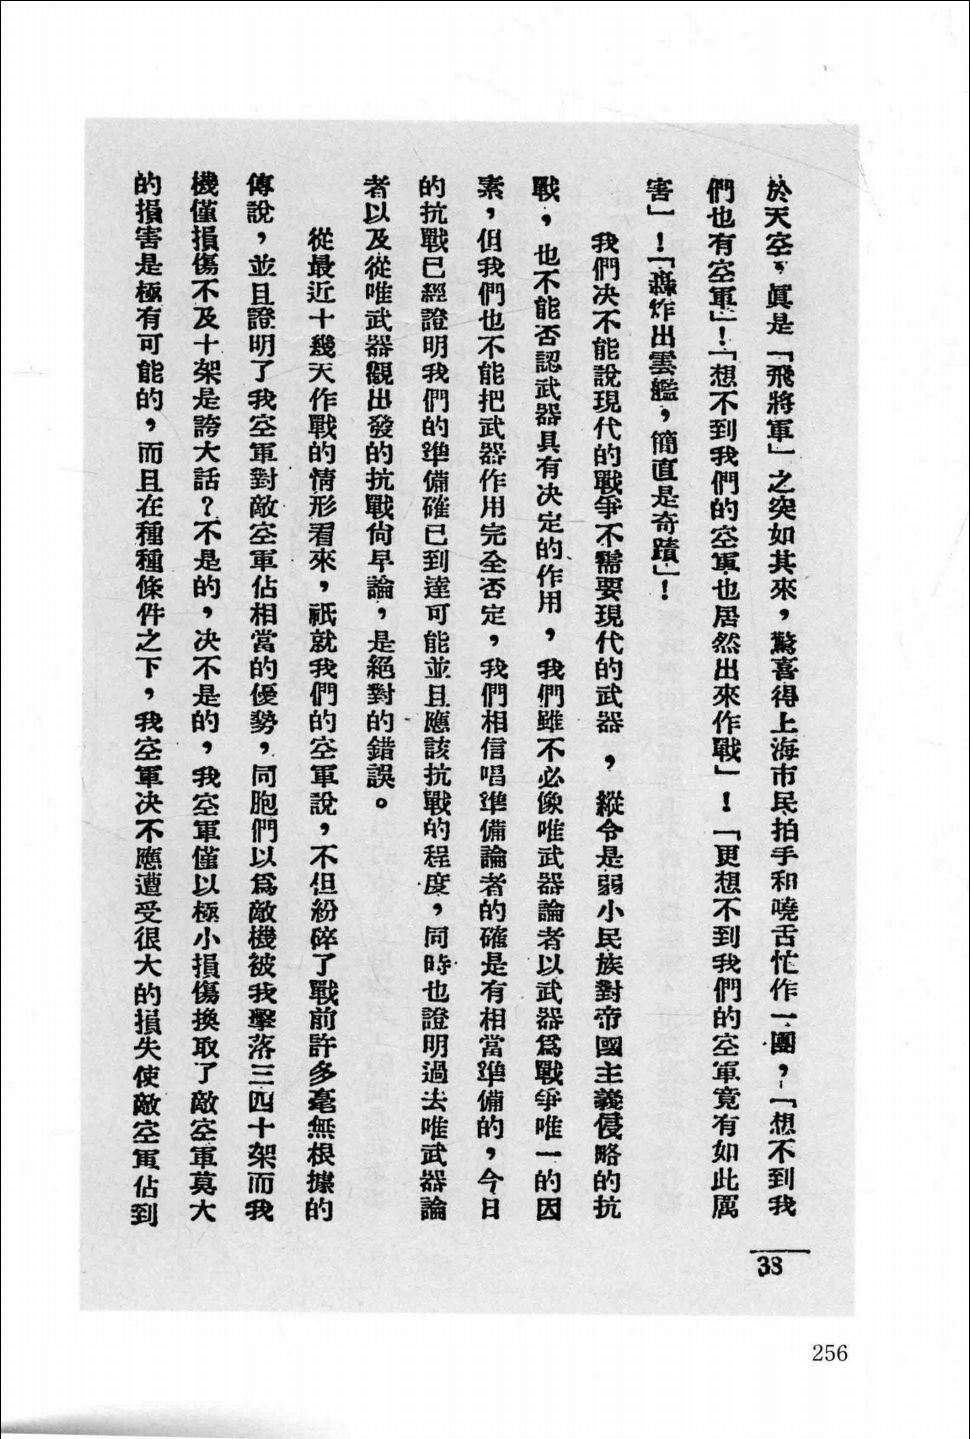 於天空，眞是「飛將軍」之突如其來，驚喜得上海市民拍手和嘵舌忙作一團，「想不到我
們也有空軍」！「想不到我們的空軍也居然出來作戰」！「更想不到我們的空軍竟有如此厲
害」！「轟炸出雲艦，簡直是奇蹟」！
我們决不能說現代的戰爭不需要現代的武器，縱令是弱小民族對帝國主義侵略的抗
戰，也不能否認武器具有决定的作用，我們雖不必像唯武器論者以武器爲戰爭唯一的因
素，但我們也不能把武器作用完全否定，我們相信唱準備論者的確是有相當準備的，今日
的抗戰已經證明我們的準備確已到達可能並且應該抗戰的程度，同時也證明過去唯武器論
者以及從唯武器觀出發的抗戰尙早論，是絕對的錯誤。
從最近十幾天作戰的情形看來，祇就我們的空軍說，不但紛碎了戰前許多毫無根據的
傳說，並且證明了我空軍對敵空軍佔相當的優勢，同胞們以爲敵機被我擊落三四十架而我
機僅損傷不及十架是誇大話？不是的，决不是的，我空軍僅以極小損傷換取了敵空軍莫大
的損害是極有可能的，而且在種種條件之下，我空軍决不應遭受很大的損失使敵空軍佔到
38
256